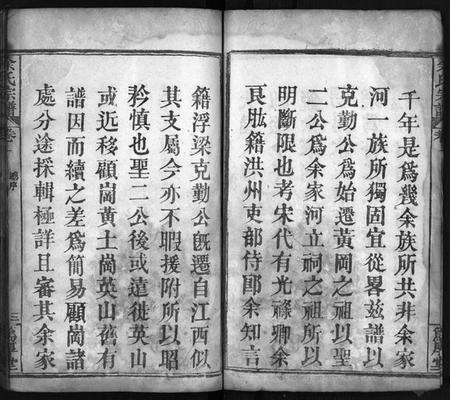 千年是為幾余族所共非余家
河一族所獨固宜從畧茲譜以
克勤公為始遷黃岡之祖以聖
二公為余家河立祠之祖所以
明斷限也考宋代有光祿卿余
良肱籍洪州吏部侍郎余知言
籍浮梁克勤公旣遷自江西似
其支屬今亦不暇援附所以昭
矜慎也聖二公後或遠徙英山
或近移顧崗黃土崗英山舊有
譜因而續之差為簡易顧崗諸
處分途採輯極詳且審其余家
余氏宗譜 卷 總序 三